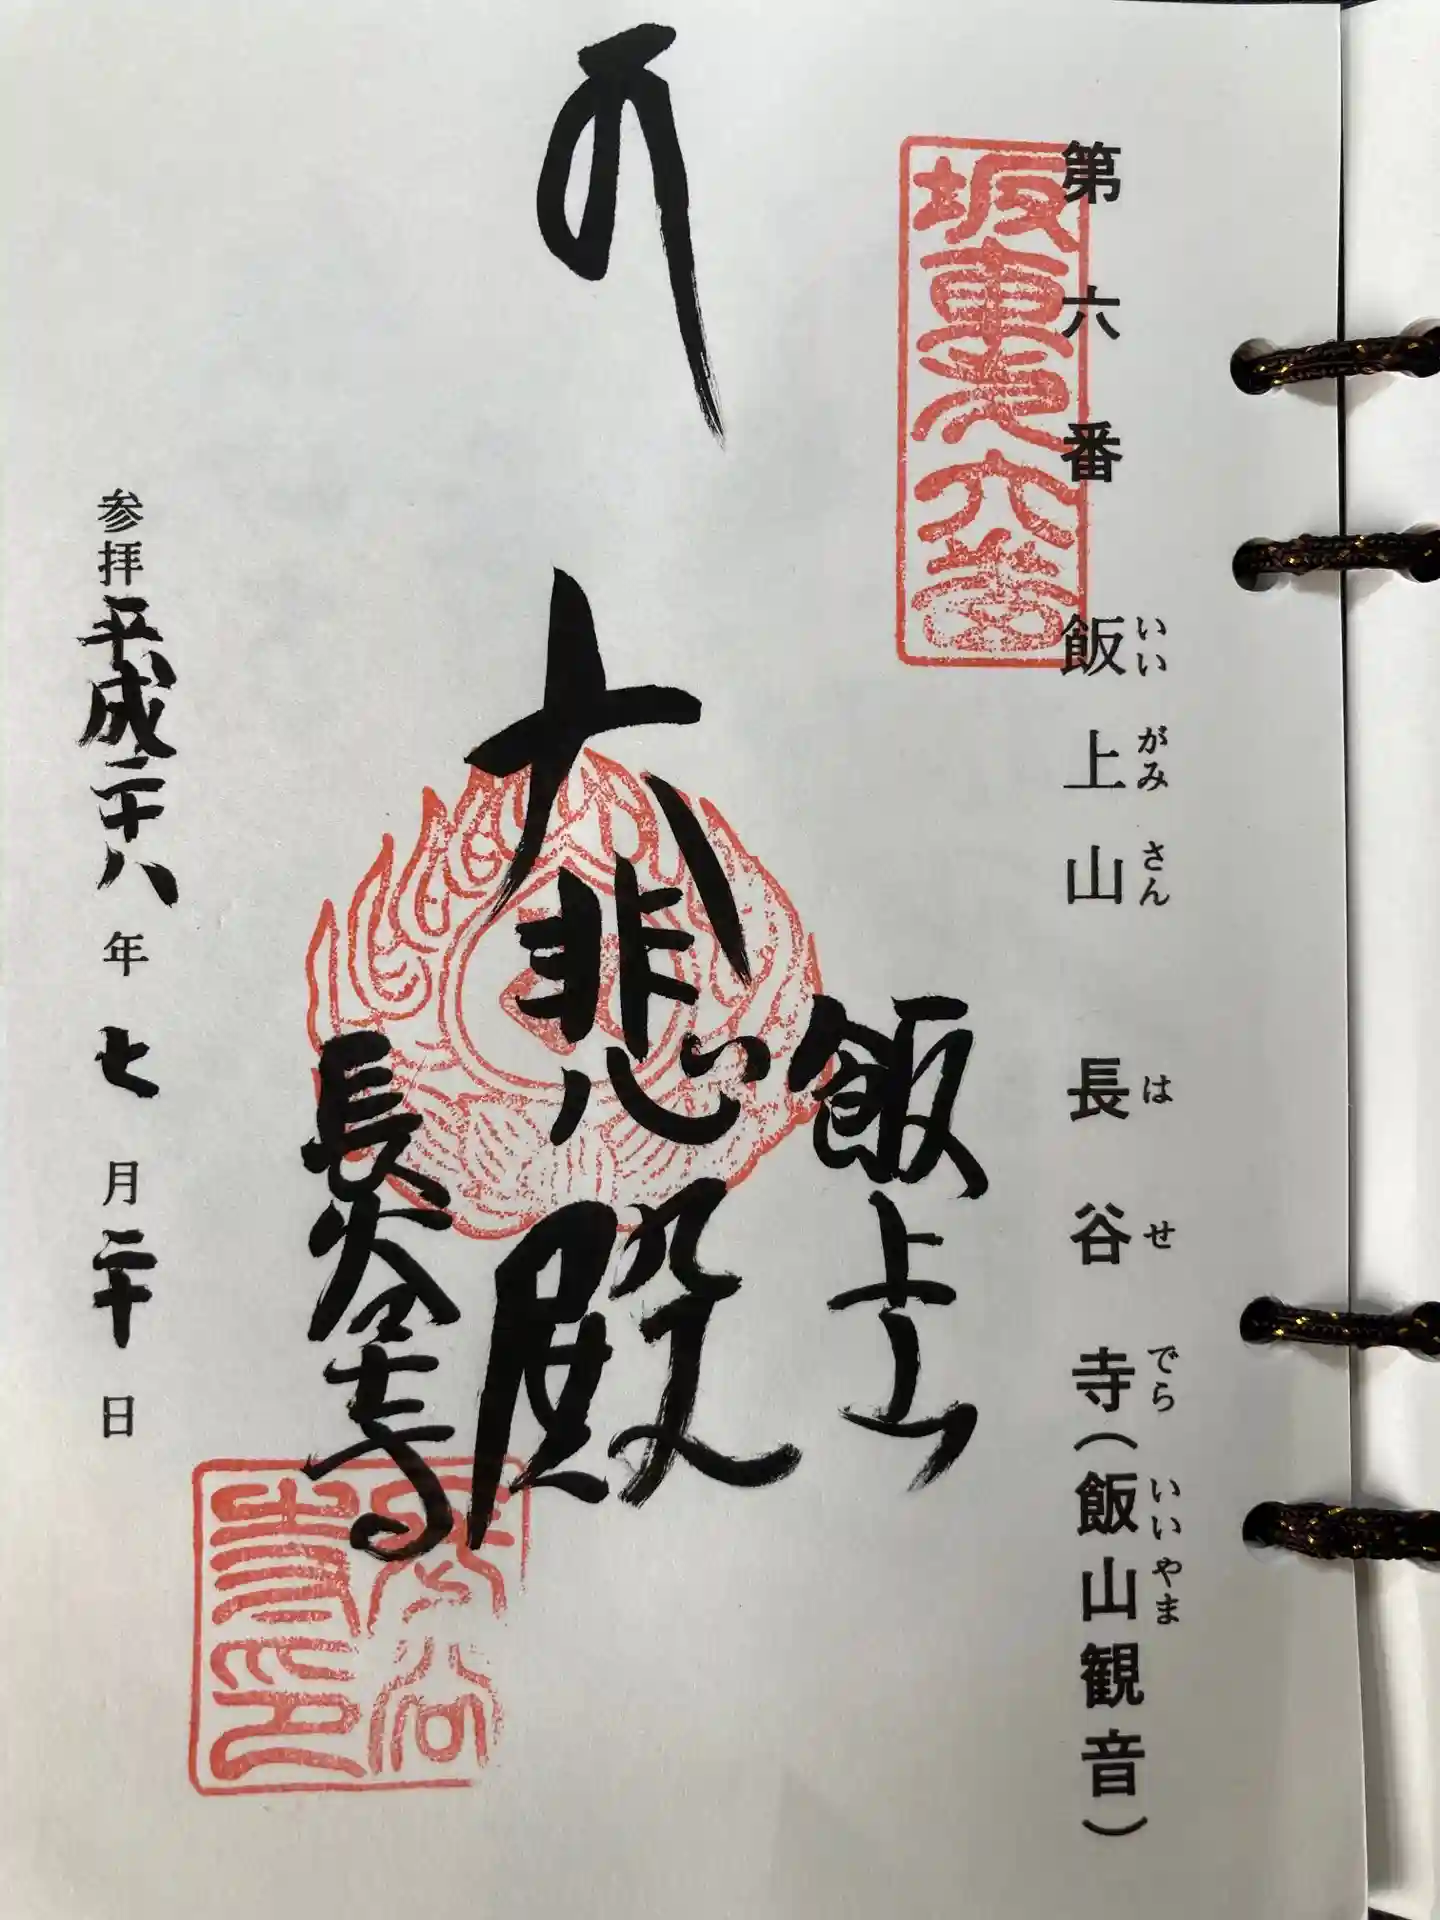 第六番　飯上山　長谷寺（飯山観音）
いいがみさん　はせでら　いいやま
坂東第六番
飯上山
大悲殿
長谷寺
長谷寺印
参拝平成二十八年七月二十日